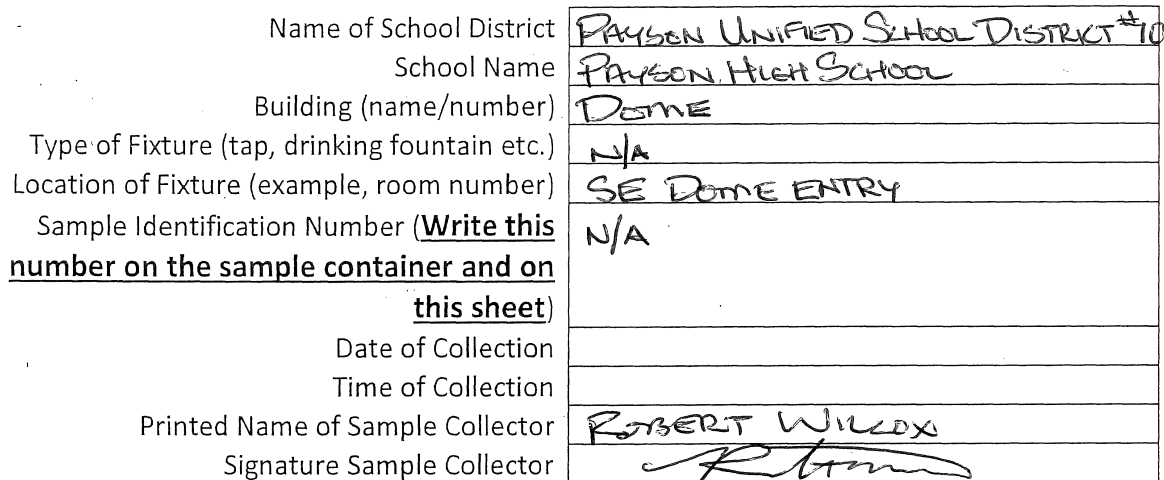 Name of School District PAYSON UNIFIED SCHOOL DISTRICT #10
School Name PAYSON HIGH SCHOOL
Building (name/number) DOME
Type of Fixture (tap, drinking fountain etc.) N/A
Location of Fixture (example, room number) SE DOME ENTRY
Sample Identification Number (Write this N/A
number on the sample container and on
this sheet)
Date of Collection
Time of Collection
Printed Name of Sample Collector ROBERT WILCOX
Signature Sample Collector